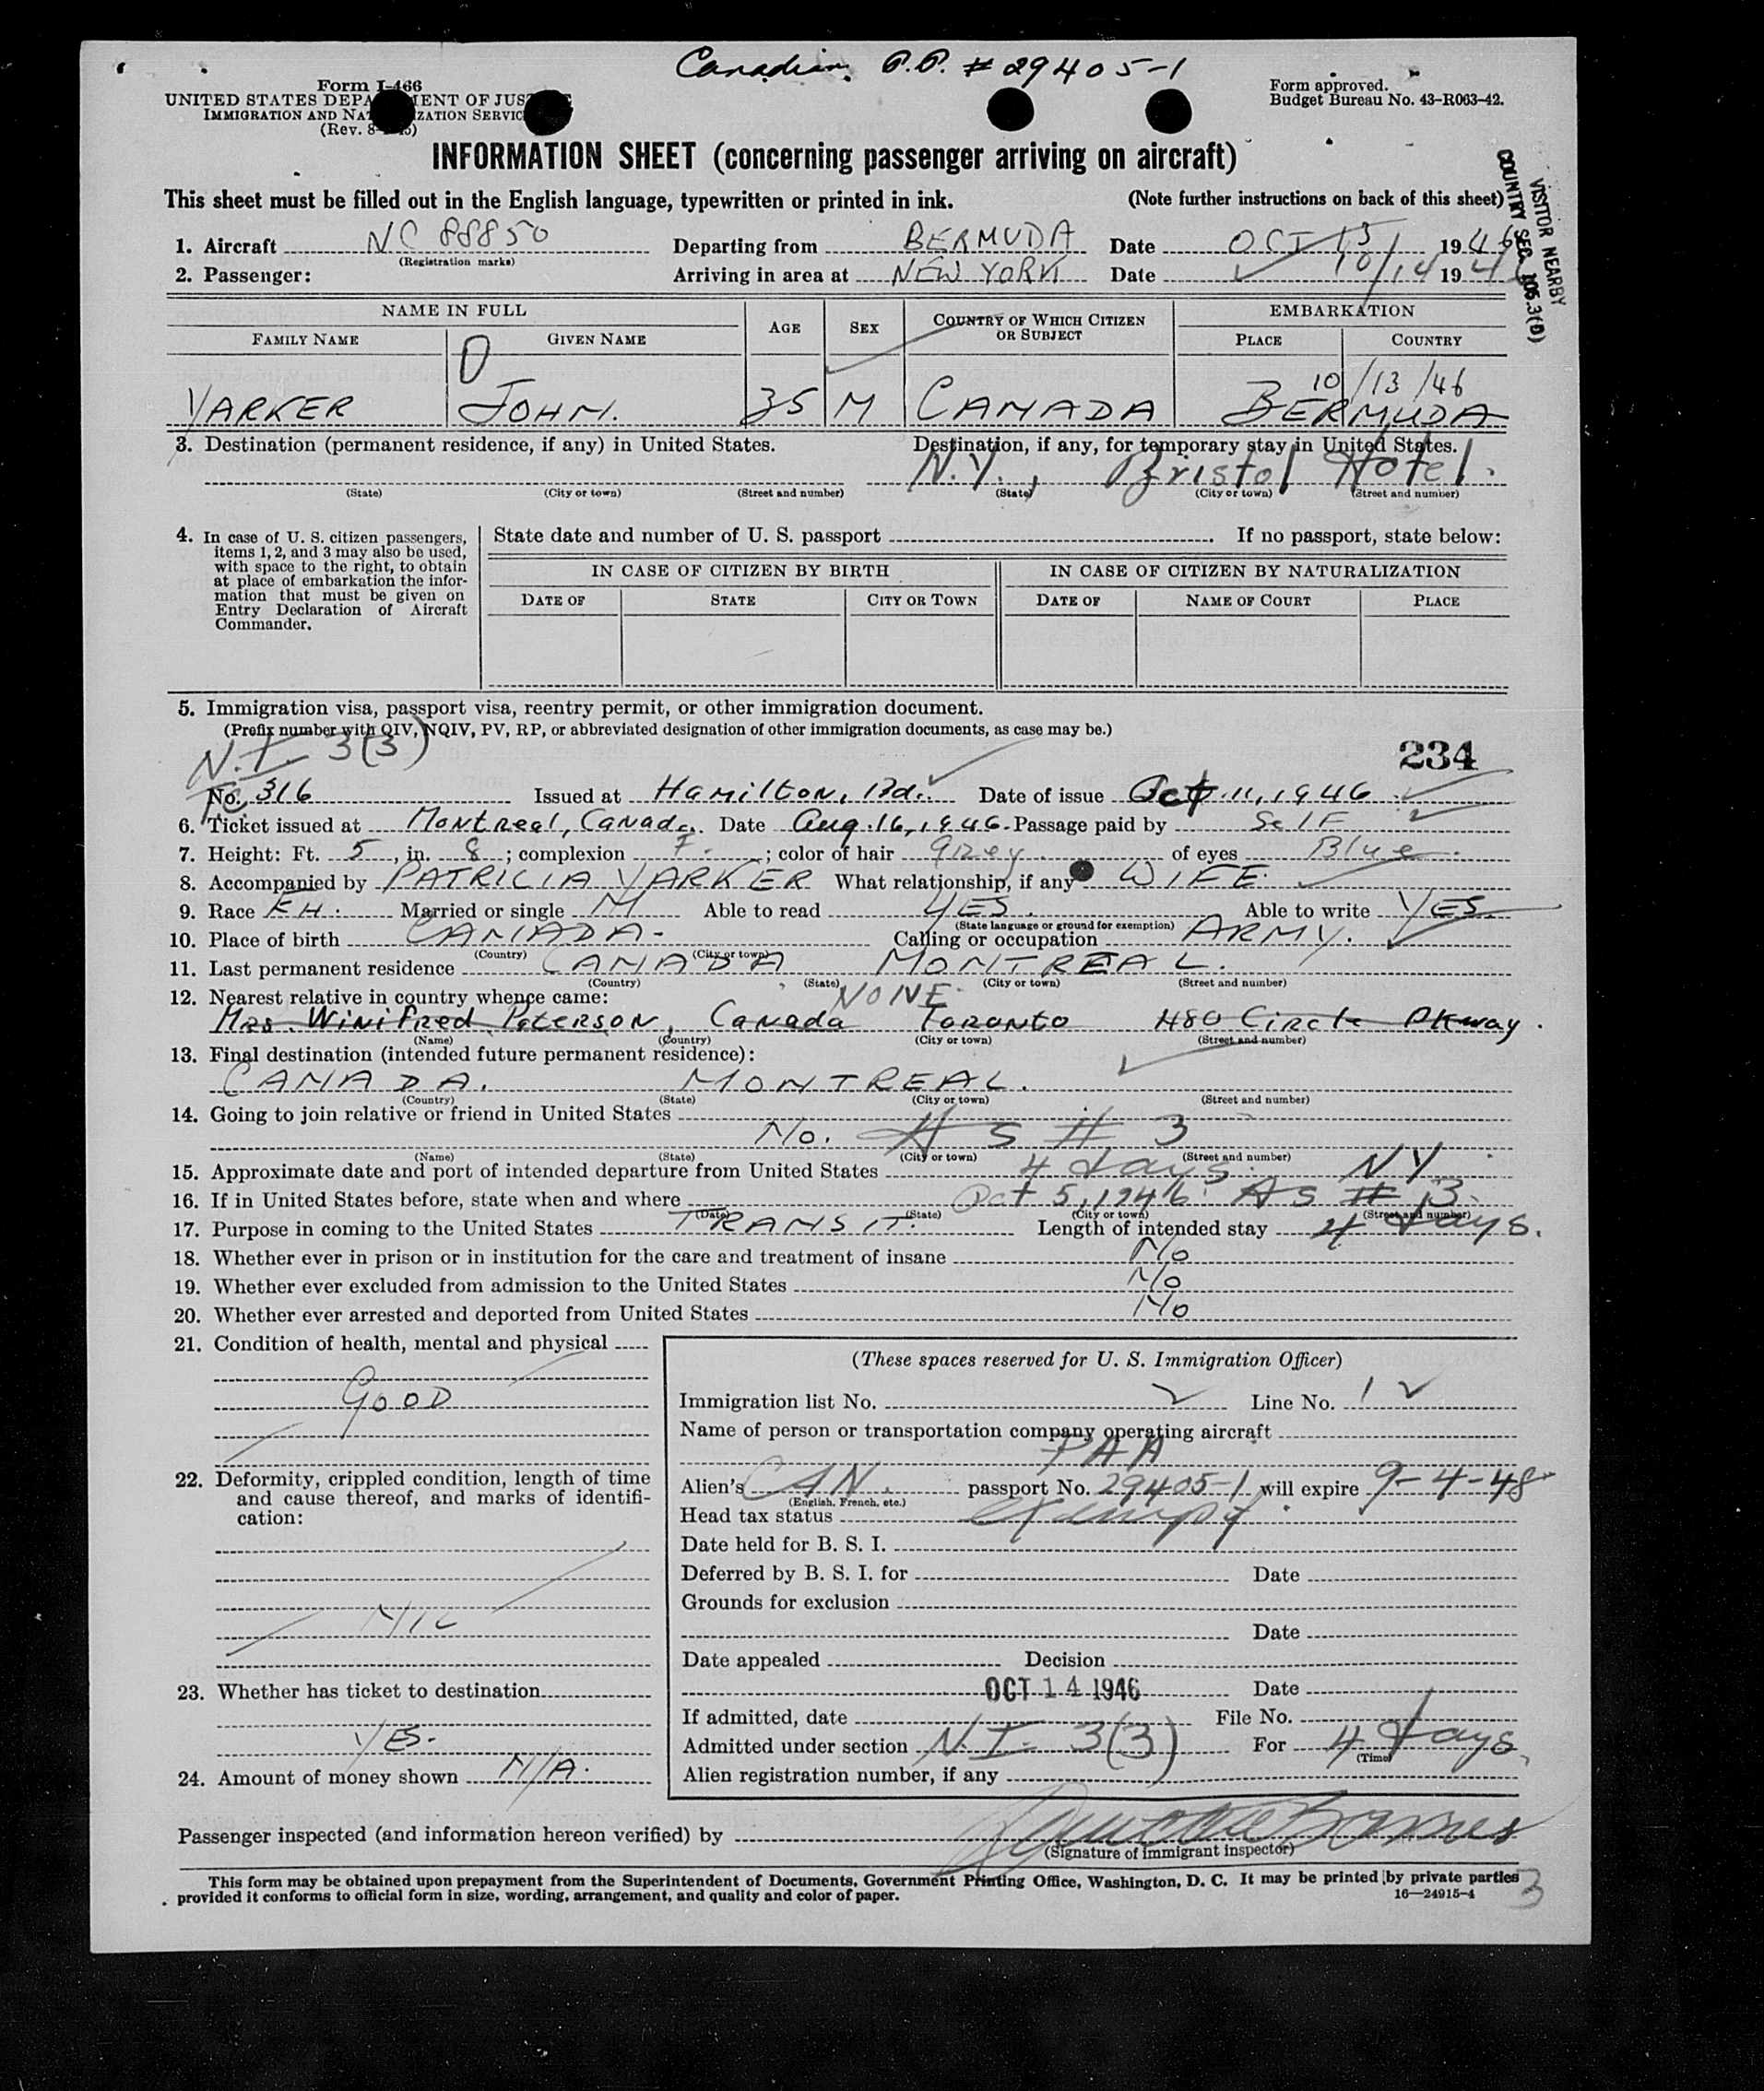 Canadian. P.P. # 29405-1
Form I-466
UNITED STATES DEPARTMENT OF JUSTICE
IMMIGRATION AND NATURALIZATION SERVICE
(Rev. 8- )
Form approved.
Budget Bureau No. 43-R063-42.
INFORMATION SHEET (concerning passenger arriving on aircraft)
This sheet must be filled out in the English language, typewritten or printed in ink. (Note further instructions on back of this sheet)
VISITOR NEARBY
COUNTRY SEC. 105.3(D)
1. Aircraft NC 88850 Departing from BERMUDA Date OCT 13 1946
(Registration marks)
2. Passenger: Arriving in area at NEW YORK Date 10/14 194
NAME IN FULL AGE SEX COUNTRY OF WHICH CITIZEN OR SUBJECT EMBARKATION
FAMILY NAME GIVEN NAME PLACE COUNTRY
10/13/46
YARKER JOHN. 35 M CANADA BERMUDA
3. Destination (permanent residence, if any) in United States. Destination, if any, for temporary stay in United States.
N.Y., Bristol Hotel.
(State) (City or town) (Street and number) (State) (City or town) (Street and number)
4. In case of U. S. citizen passengers, items 1, 2, and 3 may also be used, with space to the right, to obtain at place of embarkation the information that must be given on Entry Declaration of Aircraft Commander.
State date and number of U. S. passport . If no passport, state below:
IN CASE OF CITIZEN BY BIRTH IN CASE OF CITIZEN BY NATURALIZATION
DATE OF STATE CITY OR TOWN DATE OF NAME OF COURT PLACE
5. Immigration visa, passport visa, reentry permit, or other immigration document.
(Prefix number with QIV, NQIV, PV, RP, or abbreviated designation of other immigration documents, as case may be.)
N.I. 3(3)
234
No. 316 Issued at Hamilton, Bda. Date of issue Oct. 11, 1946
6. Ticket issued at Montreal, Canada. Date Aug. 16, 1946. Passage paid by Self
7. Height: Ft. 5, in. 8; complexion F.; color of hair Grey. of eyes Blue.
8. Accompanied by PATRICIA YARKER What relationship, if any WIFE.
9. Race EH. Married or single M Able to read YES. Able to write YES.
(State language or ground for exemption)
10. Place of birth CANADA- Calling or occupation ARMY.
(Country) (City or town)
11. Last permanent residence CANADA MONTREAL.
(Country) (State) (City or town) (Street and number)
12. Nearest relative in country whence came: NONE
Mrs. Winifred Paterson, Canada Toronto 480 Circle Pkway.
(Name) (Country) (City or town) (Street and number)
13. Final destination (intended future permanent residence):
CANADA. MONTREAL.
(Country) (State) (City or town) (Street and number)
14. Going to join relative or friend in United States
No. AS # 3
(Name) (State) (City or town) (Street and number)
15. Approximate date and port of intended departure from United States 4 days. NY.
16. If in United States before, state when and where Oct 5, 1946 AS # 3.
(Date) (State) (City or town) (Street and number)
17. Purpose in coming to the United States TRANSIT. Length of intended stay 4 days.
18. Whether ever in prison or in institution for the care and treatment of insane No
19. Whether ever excluded from admission to the United States No
20. Whether ever arrested and deported from United States No
21. Condition of health, mental and physical
GOOD
22. Deformity, crippled condition, length of time and cause thereof, and marks of identification:
NIL
23. Whether has ticket to destination
YES.
24. Amount of money shown N/A.
(These spaces reserved for U. S. Immigration Officer)
Immigration list No. 2 Line No. 12
Name of person or transportation company operating aircraft
PAA
Alien's CAN. passport No. 29405-1 will expire 9-4-48
(English, French, etc.)
Head tax status exempt
Date held for B. S. I.
Deferred by B. S. I. for Date
Grounds for exclusion
Date
Date appealed Decision
OCT 14 1946 Date
If admitted, date File No.
Admitted under section N.I. 3(3) For 4 days.
(Time)
Alien registration number, if any
Passenger inspected (and information hereon verified) by
(Signature of immigrant inspector)
This form may be obtained upon prepayment from the Superintendent of Documents, Government Printing Office, Washington, D. C. It may be printed by private parties
provided it conforms to official form in size, wording, arrangement, and quality and color of paper. 16—24915-4
3